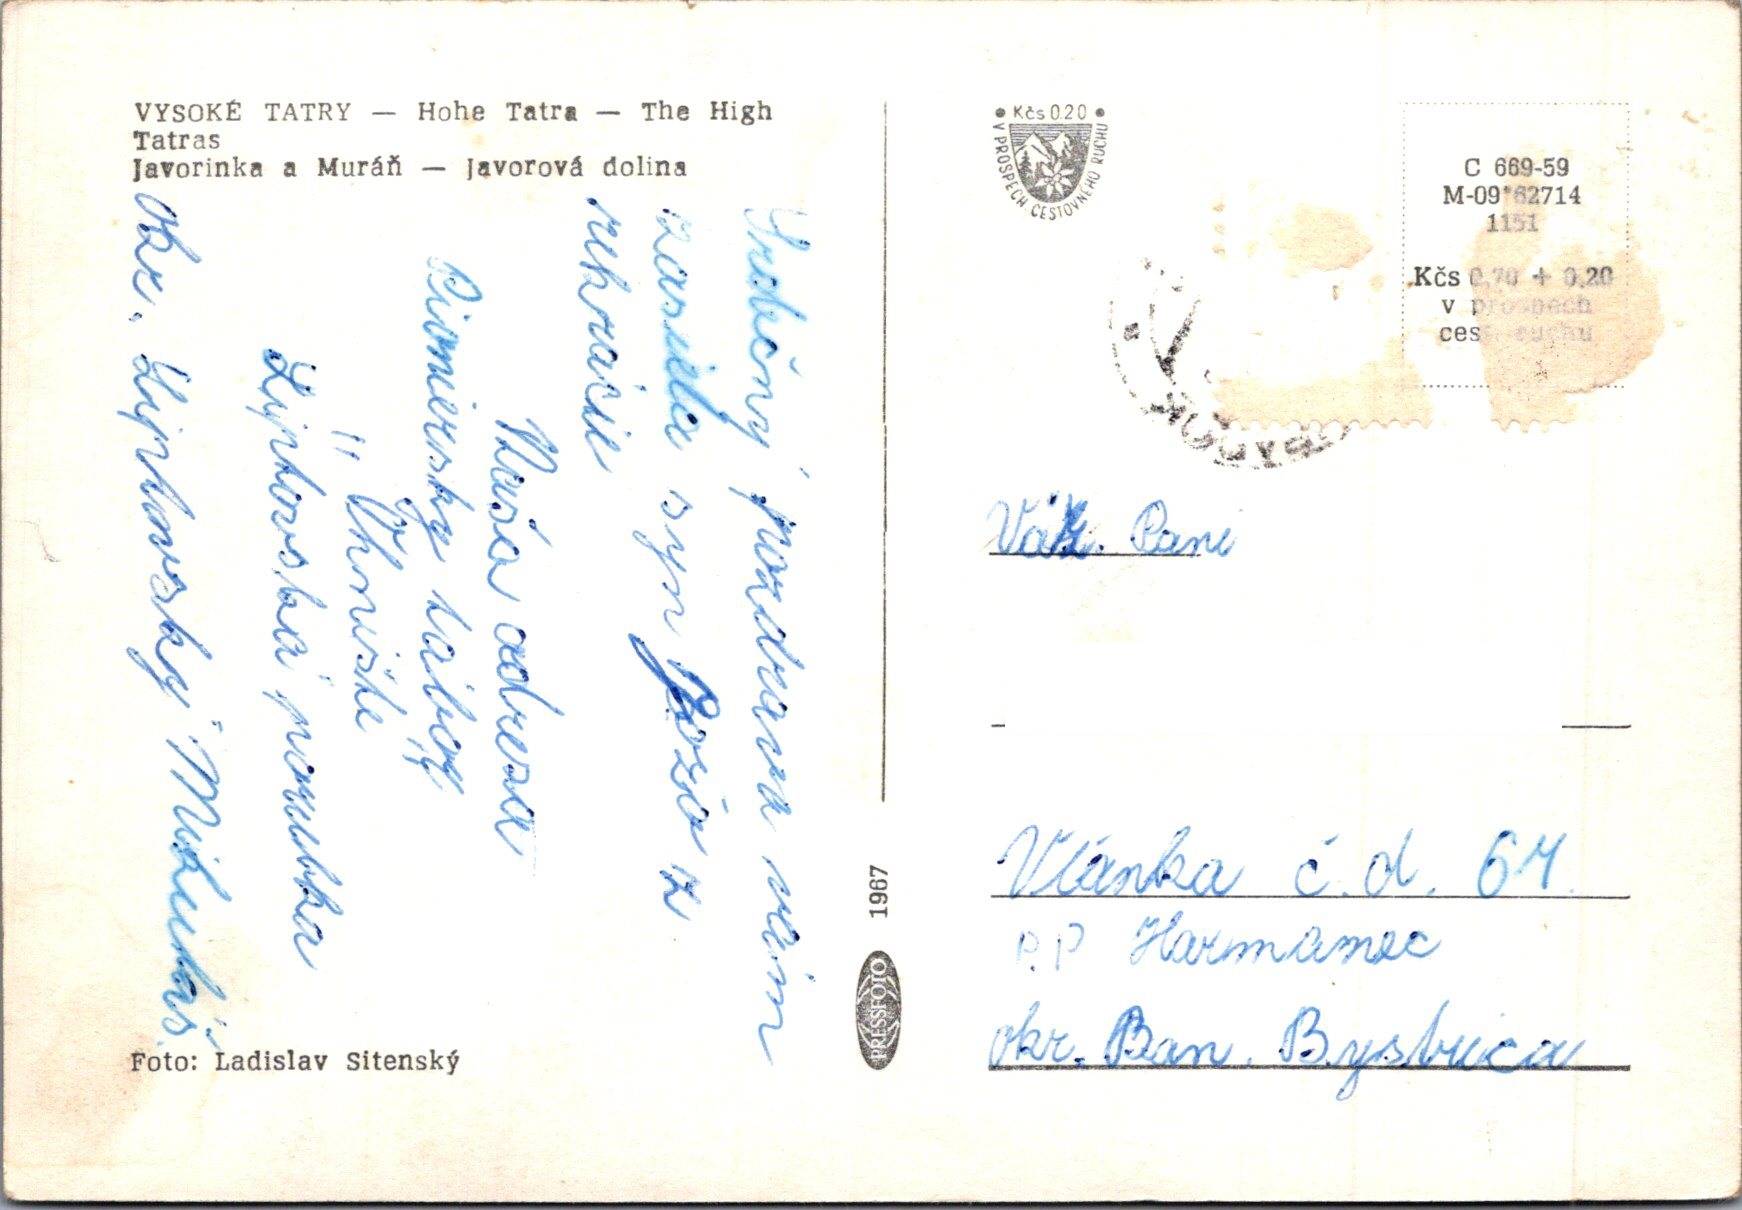 VYSOKÉ TATRY — Hohe Tatra — The High
Tatras
Javorinka a Muráň — Javorová dolina
Srdečný pozdrav vám
zasiela syn Jozo z
rekreácie
Naša adresa
Pioniersky tábor
Uhorište
Liptovská porubka
okr. Liptovský Mikuláš
Foto: Ladislav Sitenský
PRESSFOTO
1967
• Kčs 0.20 •
V PROSPECH CESTOVNÉHO RUCHU
C 669-59
M-09*62714
1151
Kčs 0,70 + 0,20
v prospech
cest. ruchu
Váž. Pani
Vlánka č.d. 64
P.P Harmanec
okr. Ban. Bystrica